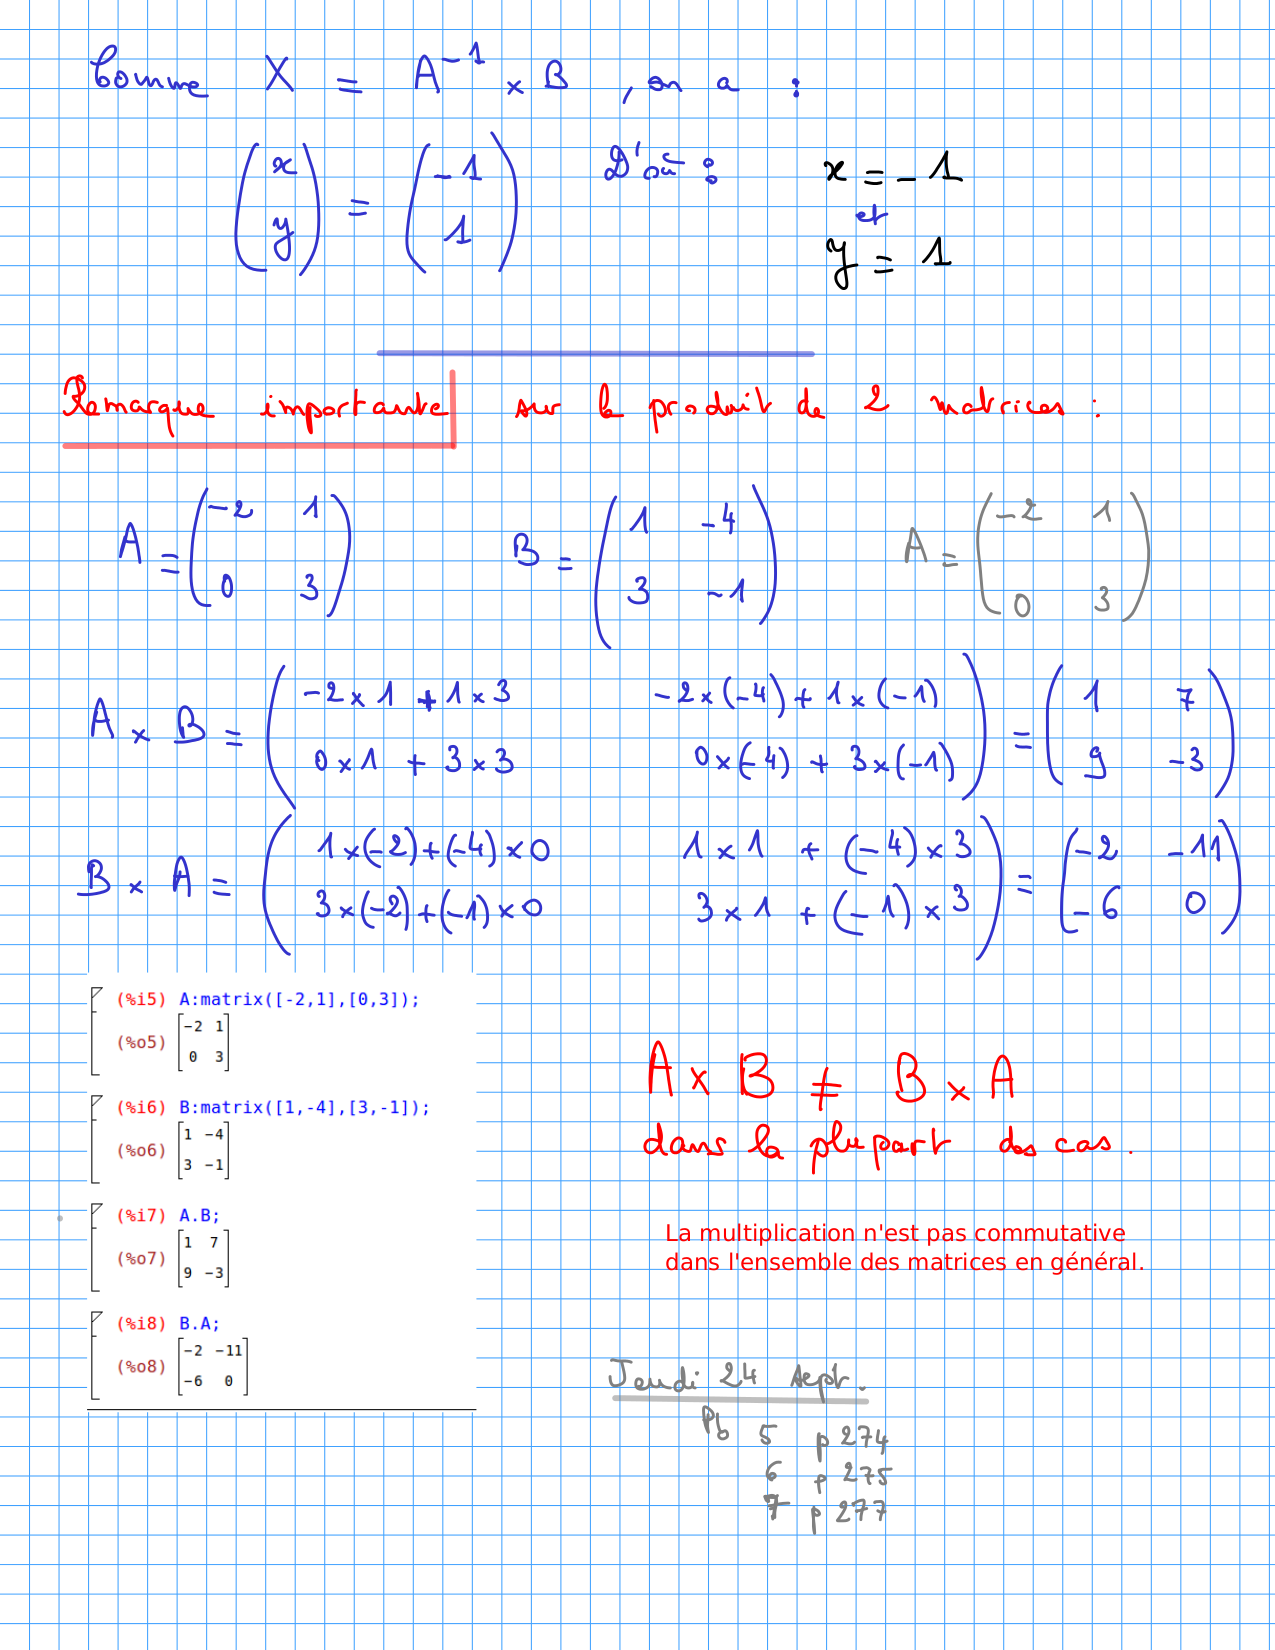 Comme X = A⁻¹ × B , on a :
(x y) = (-1 1) D'où : x = -1
et
y = 1
Remarque importante sur le produit de 2 matrices :
A = (-2 1 0 3) B = (1 -4 3 -1) A = (-2 1 0 3)
A × B = (-2×1 + 1×3 -2×(-4) + 1×(-1)) = (1 7
0×1 + 3×3 0×(-4) + 3×(-1)) 9 -3)
B × A = (1×(-2)+(-4)×0 1×1 + (-4)×3) = (-2 -11
3×(-2)+(-1)×0 3×1 + (-1)×3) -6 0)
(%i5) A:matrix([-2,1],[0,3]);
(%o5) [-2 1
0 3]
(%i6) B:matrix([1,-4],[3,-1]);
(%o6) [1 -4
3 -1]
(%i7) A.B;
(%o7) [1 7
9 -3]
(%i8) B.A;
(%o8) [-2 -11
-6 0]
A × B ≠ B × A
dans la plupart des cas.
La multiplication n'est pas commutative
dans l'ensemble des matrices en général.
Jeudi 24 Sept.
Pb 5 p 274
6 p 275
7 p 277